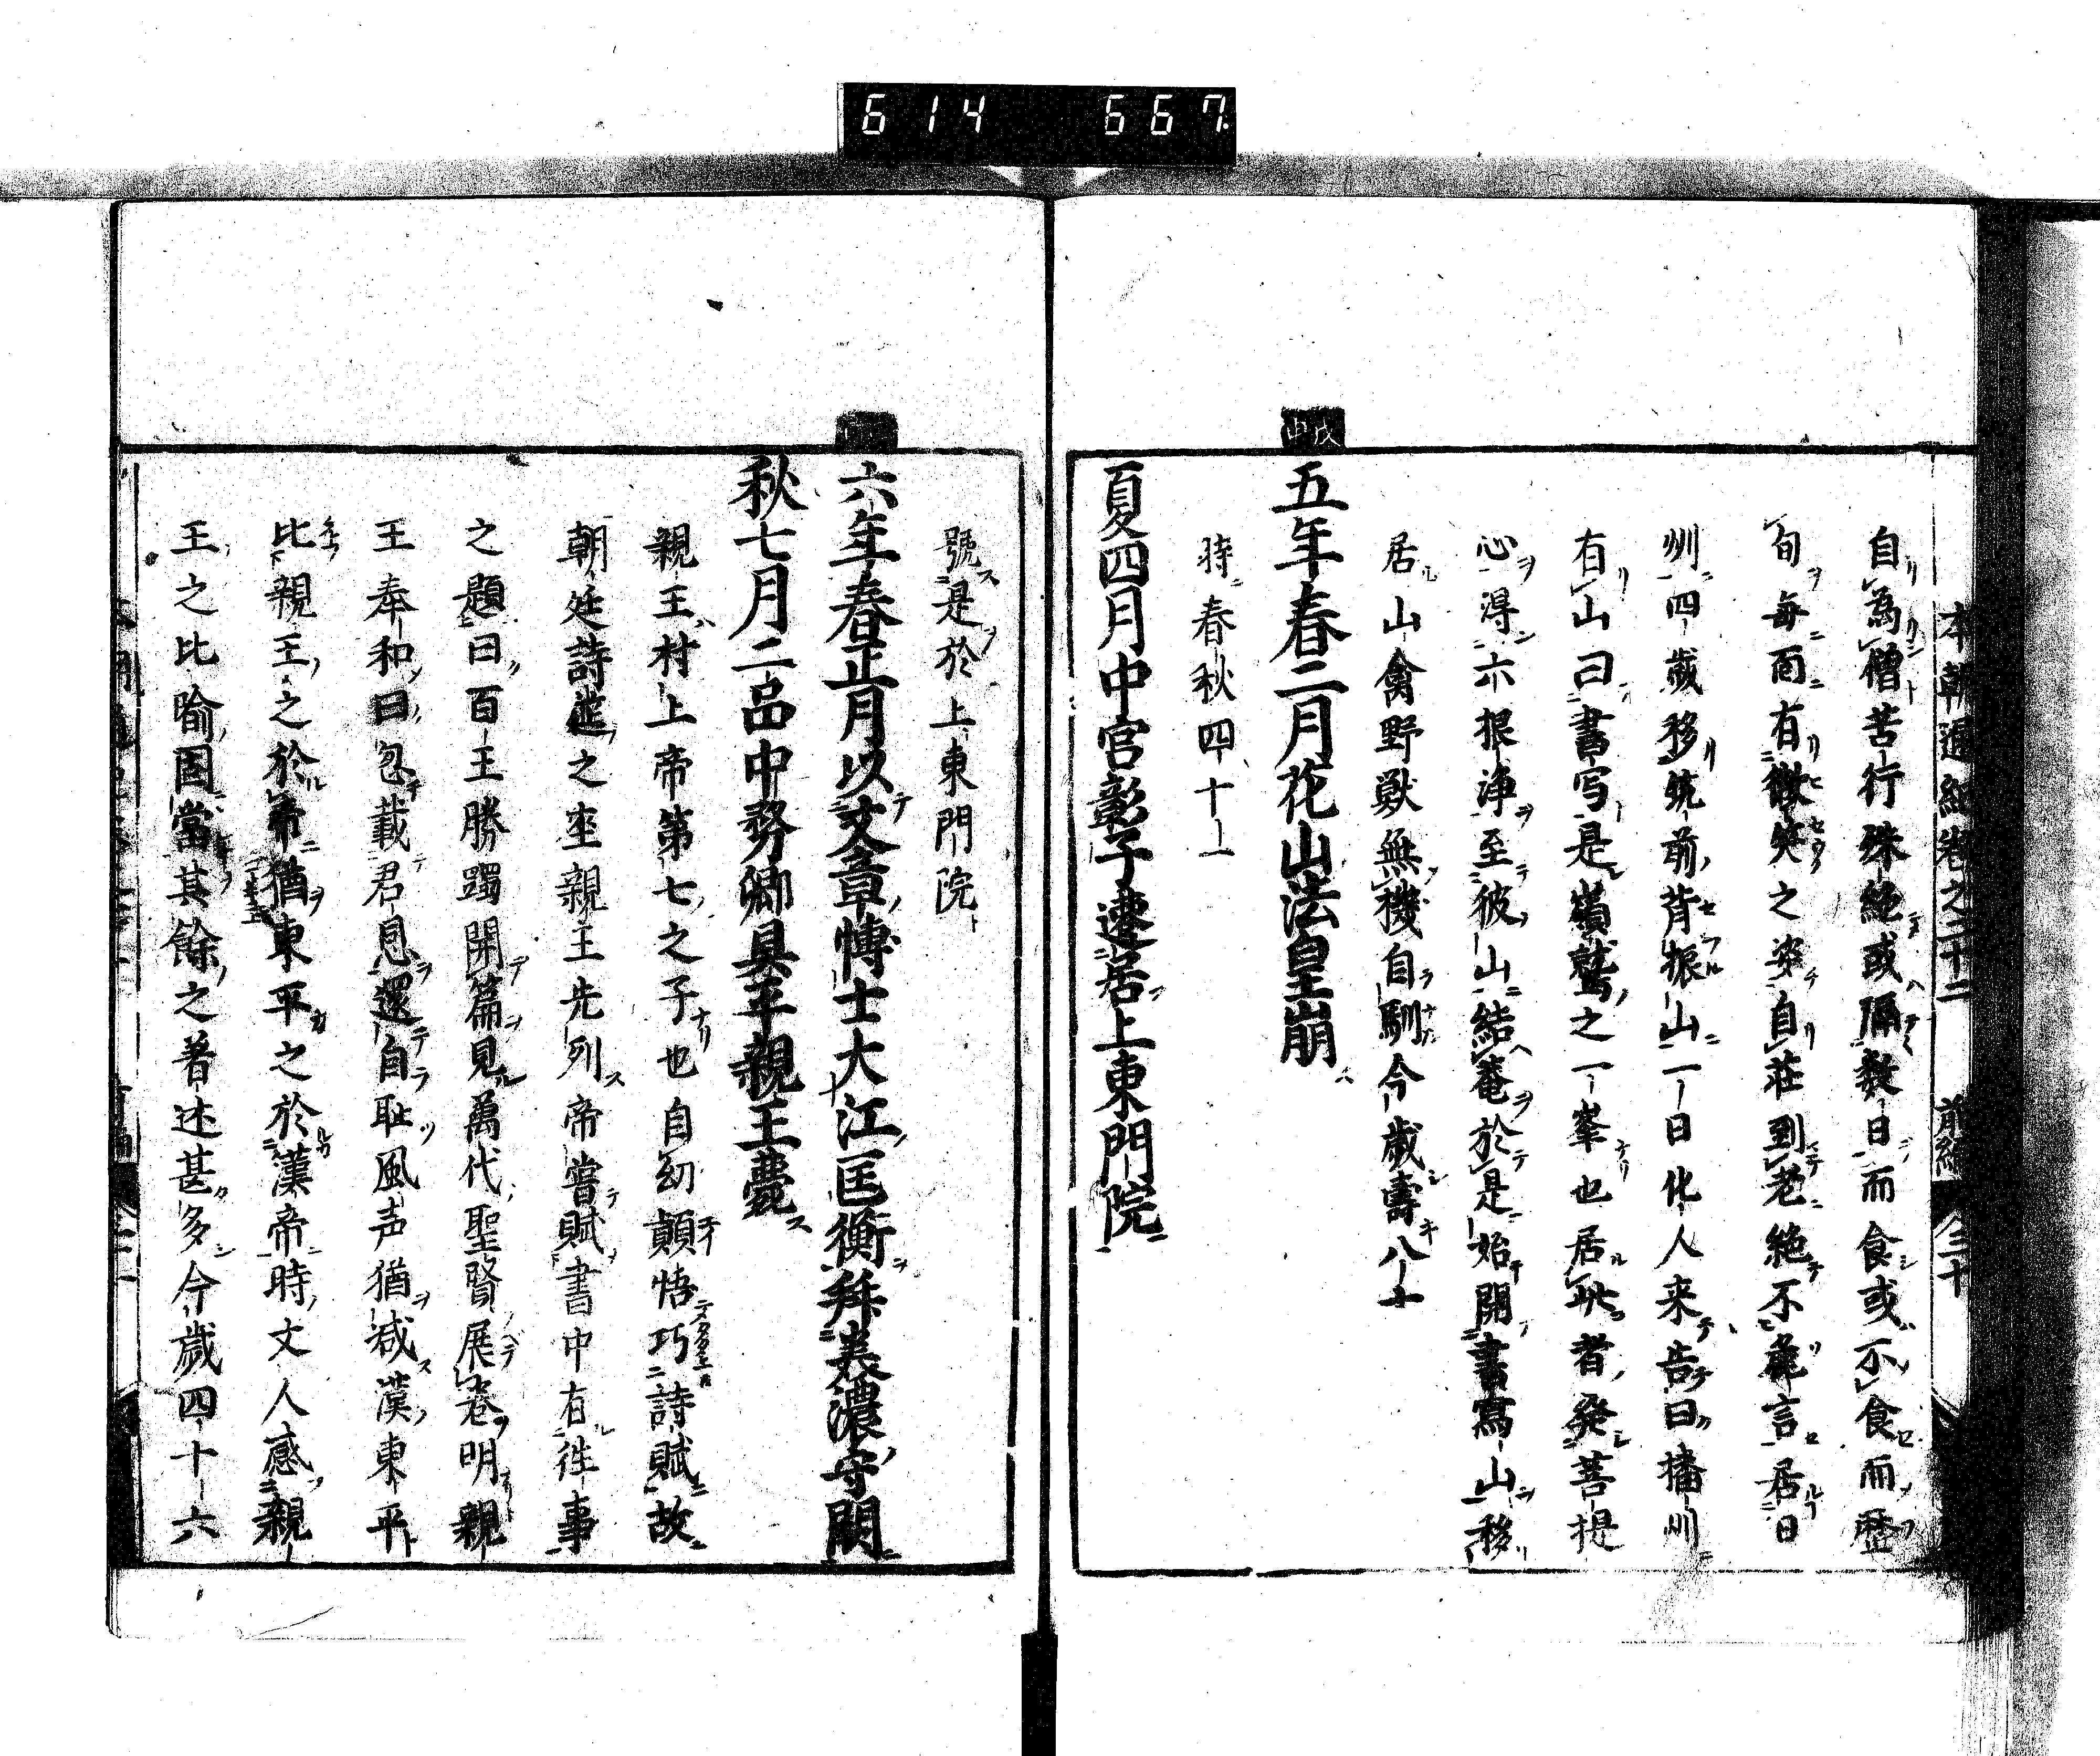 614 667
本朝通紀卷之二十二 前編 三十
自為僧苦行殊絶或隔数日而食或不食而歴
旬毎面有微笑之姿自莊到老絶不麁言居日
州四歳移筑前背振山一日化人来告曰播州
有山曰書写是嶺鷲之一峯也居此者発菩提
心得六根浄至彼山結菴於是始開書寫山移
居山禽野獣無機自馴今歳壽八十
戊申
五年春二月花山法皇崩
時春秋四十一
夏四月中宮彰子遷居上東門院
號是於上東門院
六年春正月以文章博士大江匡衡拜美濃守閏
秋七月二品中努卿具平親王薨
親王村上帝第七之子也自幼顛悟巧詩賦故
朝廷詩莚之座親王先列帝嘗賦書中有徃事
之題曰百王勝躅開篇見萬代聖賢展巻明親
王奉和曰忽載君恩還自耻風声猶减漢東平
比親王之於帝猶東平之於漢帝時文人感親
王之比喻固當其餘之著述甚多今歲四十六